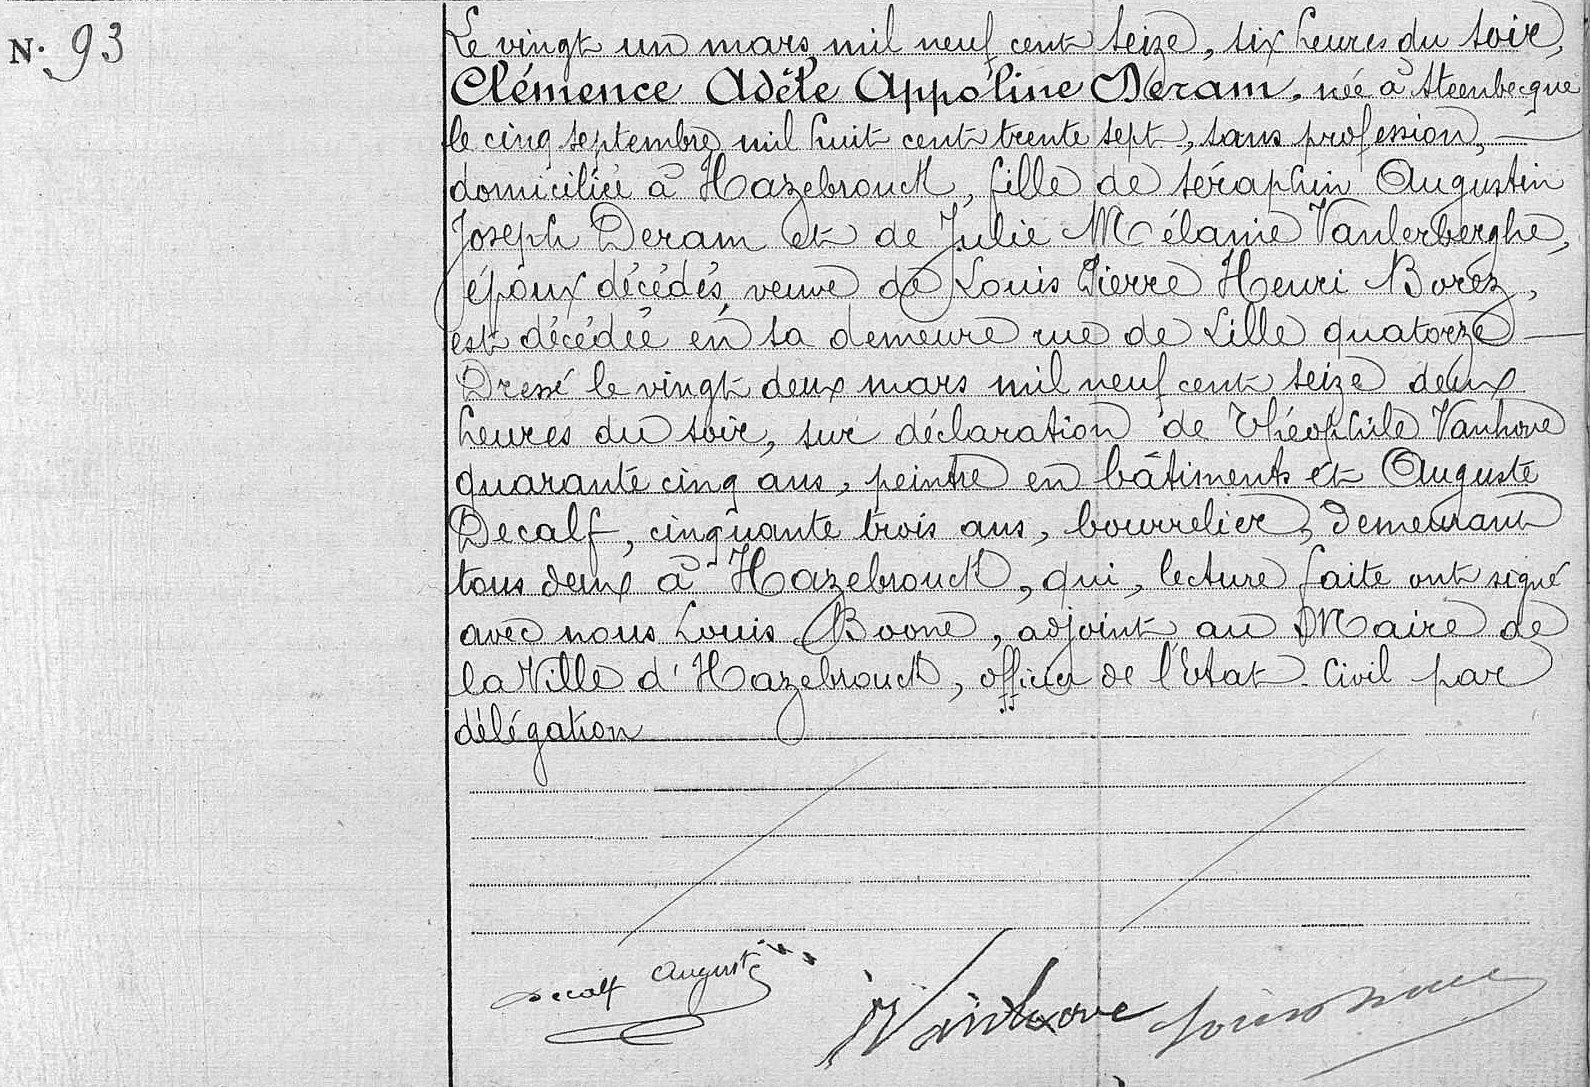 N. 93
Le vingt un mars mil neuf cent seize, six heures du soir,
Clémence Adèle Appoline Deram, née à Steenbecque
le cinq septembre mil huit cent trente sept, sans profession,
domiciliée à Hazebrouck, fille de Séraphin Augustin
Joseph Deram et de Julie Mélanie Vanlerberghe,
époux décédés, veuve de Louis Pierre Henri Boréz,
est décédée en sa demeure rue de Lille quatorze
Dressé le vingt deux mars mil neuf cent seize deux
heures du soir, sur déclaration de Théophile Vanhove
quarante cinq ans, peintre en bâtiments et Auguste
Decalf, cinquante trois ans, bourrelier, demeurant
tous deux à Hazebrouck, qui, lecture faite ont signé
avec nous Louis Boone, adjoint au Maire de
la Ville d'Hazebrouck, officier de l'Etat Civil par
délégation
Decalf Auguste Vanhove Louis Boone